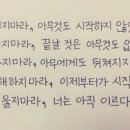 하지마라, 아무것도 시작하지 않
지마라, 끝날 것은 아무것도 없
지마라, 아무에게도 뒤쳐지지
해하지마라, 이제부터가 시작
울지마라, 너는 아직 이르다